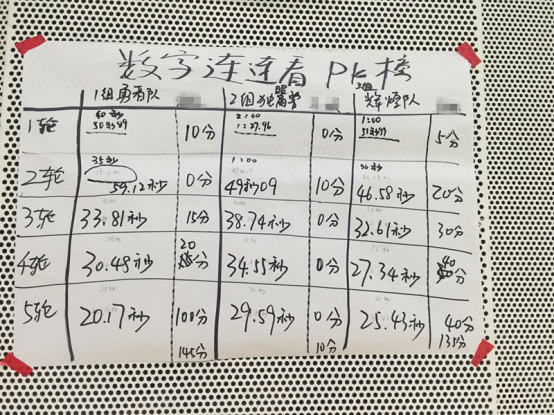 数字连连看 PK榜
1组勇勇队 2组 3组辉煌队
1轮 40秒 50秒89 10分 2:00 1:27.96 0分 1:00 51秒 5分
2轮 35秒 59.12秒 0分 1:00 49秒09 10分 50秒 46.58秒 20分
3轮 33.81秒 15分 38.74秒 0分 32.61秒 30分
4轮 30.48秒 20分 34.55秒 0分 27.34秒 40分
5轮 20.17秒 100分 29.59秒 0分 25.43秒 40分
145分 10分 135分